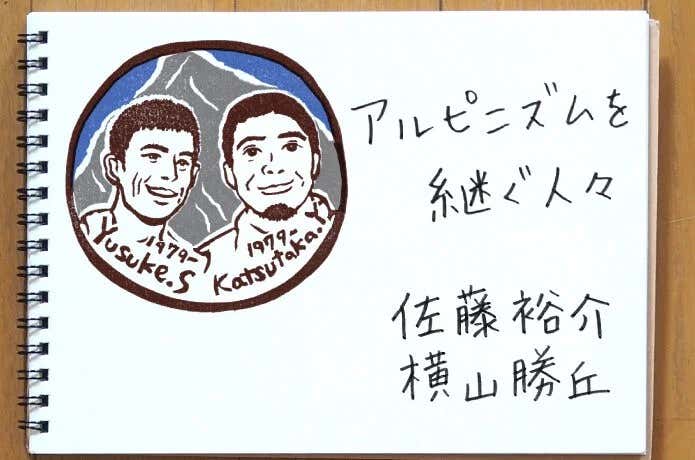 アルピニズムを
継ぐ人々
佐藤裕介
横山勝丘
1979-
Yusuke.S
1979-
Katsutaka.Y